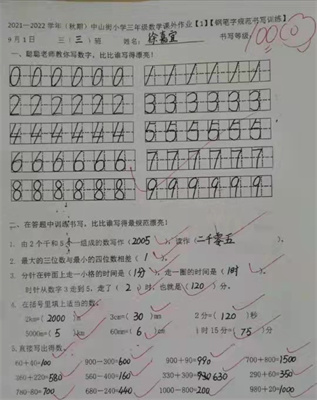 2021—2022学年（秋期）中山街小学三年级数学课外作业【1】【钢笔字规范书写训练】
9月1日 三（三）班 姓名：徐嘉宜 书写等级：100
一、聪聪老师教你写数字，比比谁写得漂亮！
0 0 0 0 0 0 0 1 1 1 1 1 1 1
2 2 2 2 2 2 2 3 3 3 3 3 3 3
4 4 4 4 4 4 4 5 5 5 5 5 5 5
6 6 6 6 6 6 6 7 7 7 7 7 7 7
8 8 8 8 8 8 8 9 9 9 9 9 9 9
二、在答题中训练书写，比比谁写得最规范漂亮！
1. 由2个千和5个一组成的数写作（2005），读作（二千零五）。
2. 最大的三位数与最小的四位数相差（1）。
3. 分针在钟面上走一小格的时间是（1分），走一圈的时间是（1时）。
时针从数字3走到5，走了（2）时，也就是（120）分。
4. 在括号里填上适当的数。
2km=（2000）m 3cm=（30）mm 2分=（120）秒
5000m=（5）km 60mm=（6）cm 1时15分=（75）分
5. 直接写出得数。
60+40=100 900－300=600 900+90=990 700+800=1500
360+220=580 560－400=160 330+300=630 630 980－620=360
760-80=700 680－240=440 1000－800=200 980+20=1000